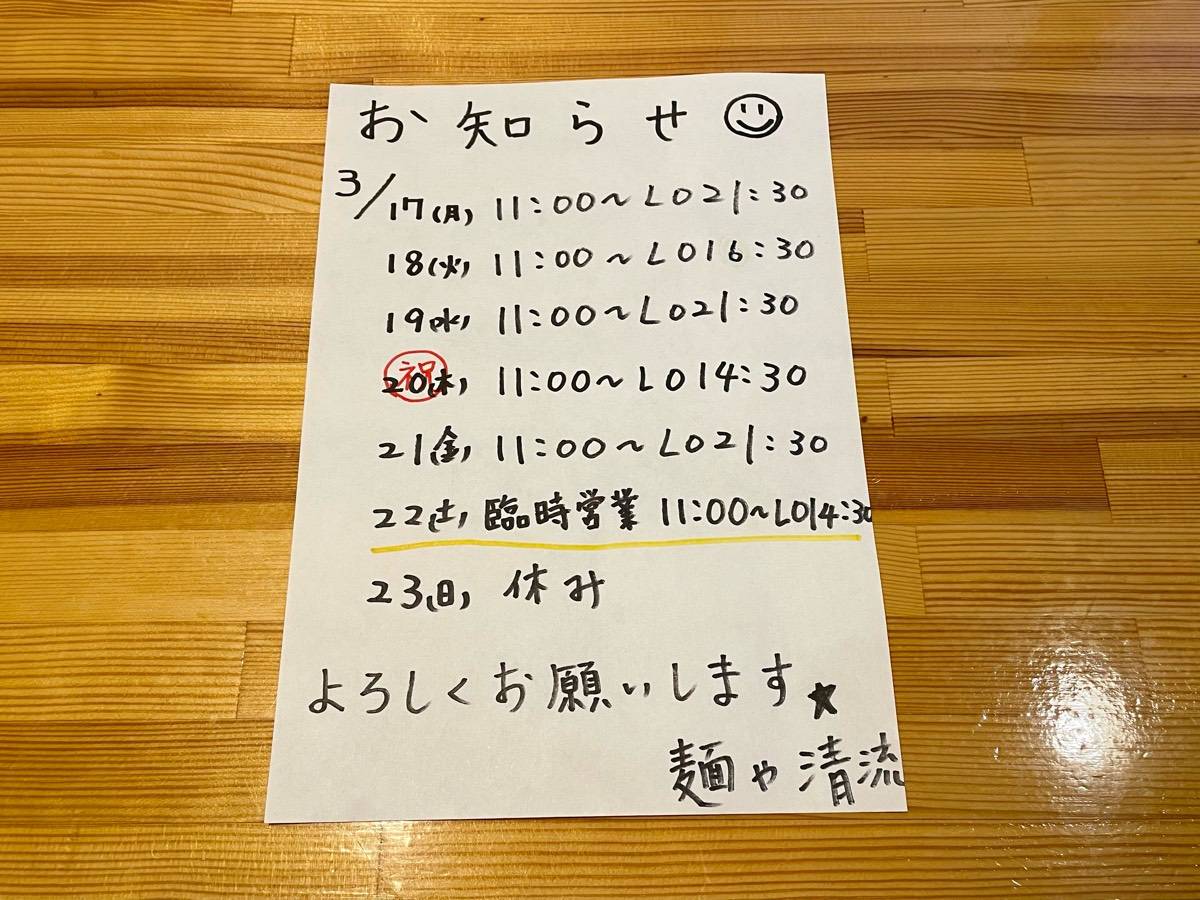 お知らせ
3/17(月) 11:00～LO21:30
18(火) 11:00～LO16:30
19(水) 11:00～LO21:30
祝
20(木) 11:00～LO14:30
21(金) 11:00～LO21:30
22(土) 臨時営業 11:00～LO14:30
23(日) 休み
よろしくお願いします★
麺や清流